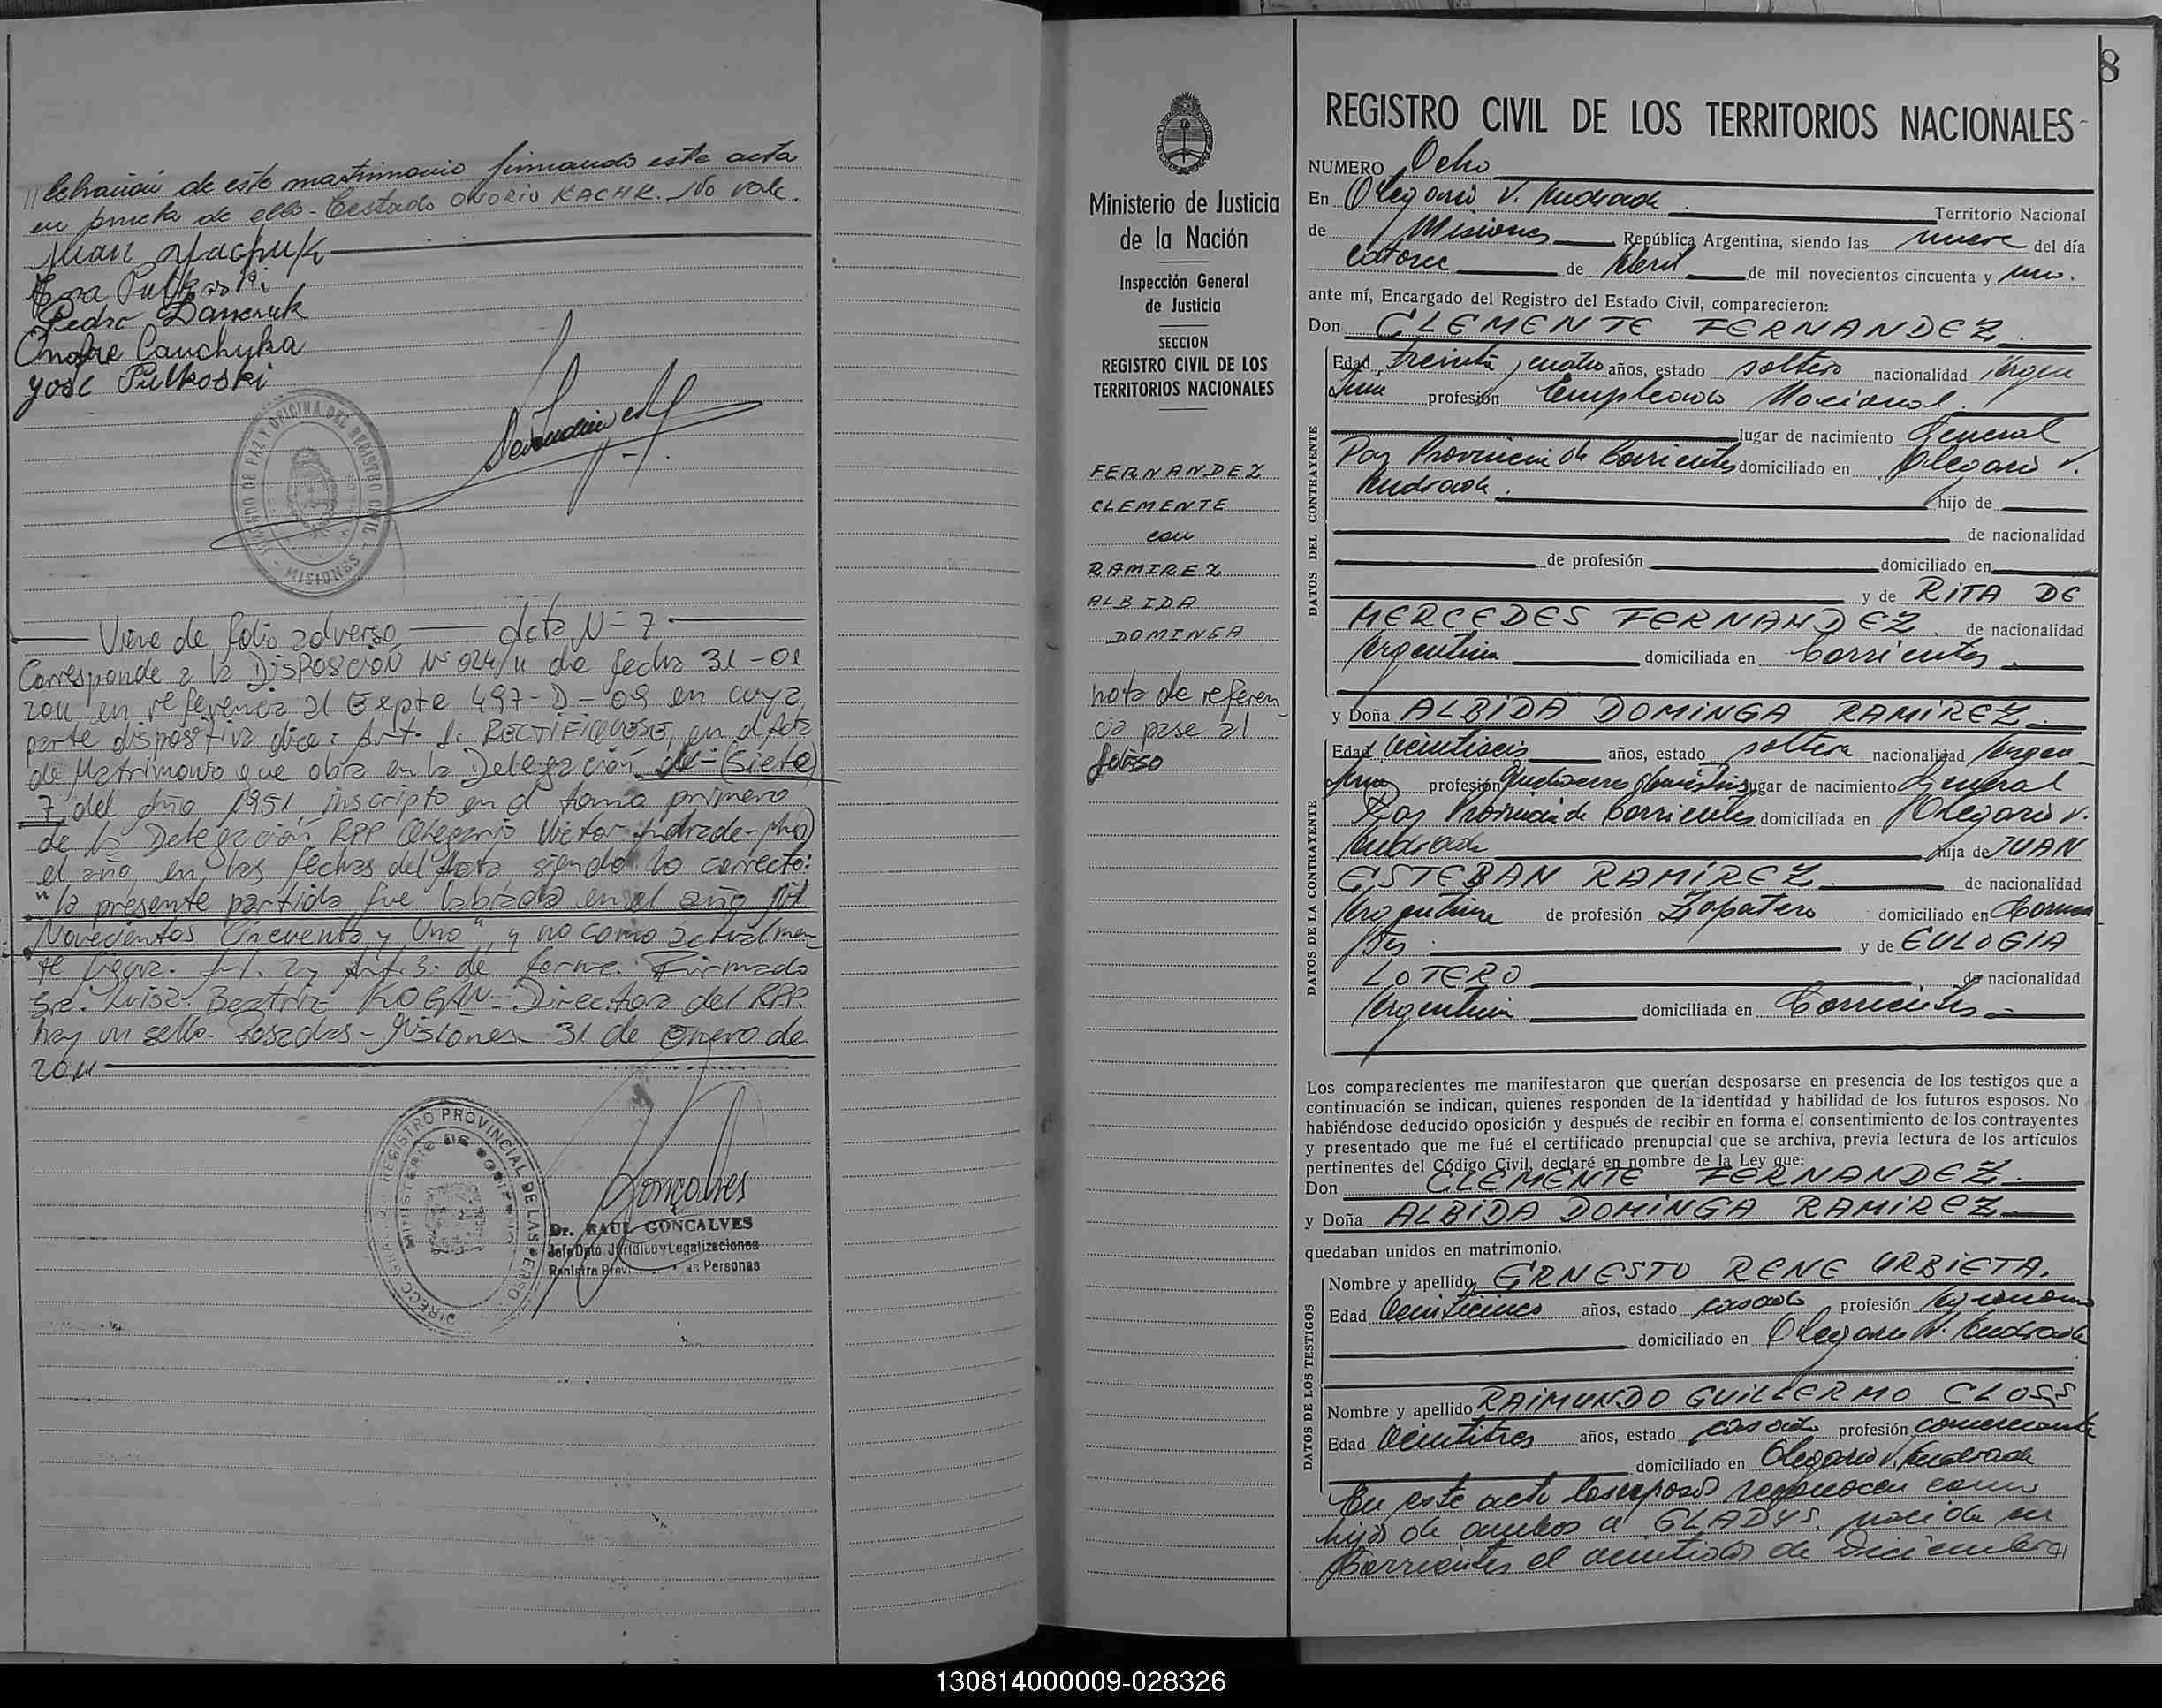 // lebración de este matrimonio firmando esta acta
en prueba de ello - Testado ONORIO KACHK. No vale.
Juan
Pedro
Onofre Cauchyka
José Pulkoski
JUZGADO DE PAZ Y OFICINA DEL REGISTRO CIVIL
MISIONES
Viene de folio adverso acta Nº 7
Corresponde a la DISPOSICIÓN Nº 024/11 de fecha 31-01
2011 en referencia al Expte 497-D-09 en cuya
parte dispositiva dice: Art. 1. RECTIFIQUESE, en el Acta
de Matrimonio que obra en la Delegación (Siete)
7 del año 1951, inscripto en el tomo primero
de la Delegación RPP Olegario Victor Andrade
el año en las fechas del Acta siendo lo correcto:
"la presente partida fue labrada en el año Mil
Novecientos Cincuenta y Uno", y no como actualmen-
te figura. Art. 2 y Art. 3. de forma. Firmado
Sra. Luisa Beatriz KOGAN - Directora del RPP.
hay un sello. Posadas - Misiones 31 de Enero de
2011
REGISTRO PROVINCIAL DE LAS PERSO
MINISTERIO DE GOBIERNO
Gonçalves
Dr. RAUL GONCALVES
Jefe Dpto. Jurídico y Legalizaciones
Registro Provi as Personas
Ministerio de Justicia
de la Nación
Inspección General
de Justicia
SECCION
REGISTRO CIVIL DE LOS
TERRITORIOS NACIONALES
FERNANDEZ
CLEMENTE
con
RAMIREZ
ALBIDA
DOMINGA
nota de referen
cia pase al
8
REGISTRO CIVIL DE LOS TERRITORIOS NACIONALES
NUMERO Ocho
En Olegario V. Andrade Territorio Nacional
de Misiones República Argentina, siendo las nueve del día
catorce de Abril de mil novecientos cincuenta y uno.
ante mí, Encargado del Registro del Estado Civil, comparecieron:
Don CLEMENTE FERNANDEZ
DATOS DEL CONTRAYENTE
Edad treinta y cuatro años, estado soltero nacionalidad Argen
tina profesión Empleado Nacional.
lugar de nacimiento General
Paz Provincia de Corrientes domiciliado en Olegario V.
Andrade. hijo de
de nacionalidad
de profesión domiciliado en
y de RITA DE
MERCEDES FERNANDEZ de nacionalidad
Argentina domiciliada en Corrientes
y Doña ALBIDA DOMINGA RAMIREZ
DATOS DE LA CONTRAYENTE
Edad veintiseis años, estado soltera nacionalidad Argen-
tina profesión Quehaceres domésticos lugar de nacimiento General
Paz Provincia de Corrientes domiciliada en Olegario V.
Andrade hija de JUAN
ESTEBAN RAMIREZ de nacionalidad
Argentina de profesión Zapatero domiciliado en Corrien
tes y de EULOGIA
LOTERO de nacionalidad
Argentina domiciliada en Corrientes
Los comparecientes me manifestaron que querían desposarse en presencia de los testigos que a
continuación se indican, quienes responden de la identidad y habilidad de los futuros esposos. No
habiéndose deducido oposición y después de recibir en forma el consentimiento de los contrayentes
y presentado que me fué el certificado prenupcial que se archiva, previa lectura de los artículos
pertinentes del Código Civil, declaré en nombre de la Ley que:
Don CLEMENTE FERNANDEZ.
y Doña ALBIDA DOMINGA RAMIREZ
quedaban unidos en matrimonio.
DATOS DE LOS TESTIGOS
Nombre y apellido ERNESTO RENE URBIETA.
Edad veinticinco años, estado casado profesión
domiciliado en Olegario V. Andrade
Nombre y apellido RAIMUNDO GUILLERMO CLOSS
Edad veintitres años, estado casado profesión comerciante
domiciliado en Olegario V. Andrade
En este acto los esposos reconocen como
hija de ambos a GLADYS nacida en
Corrientes el veintidos de Diciembre //
130814000009-028326